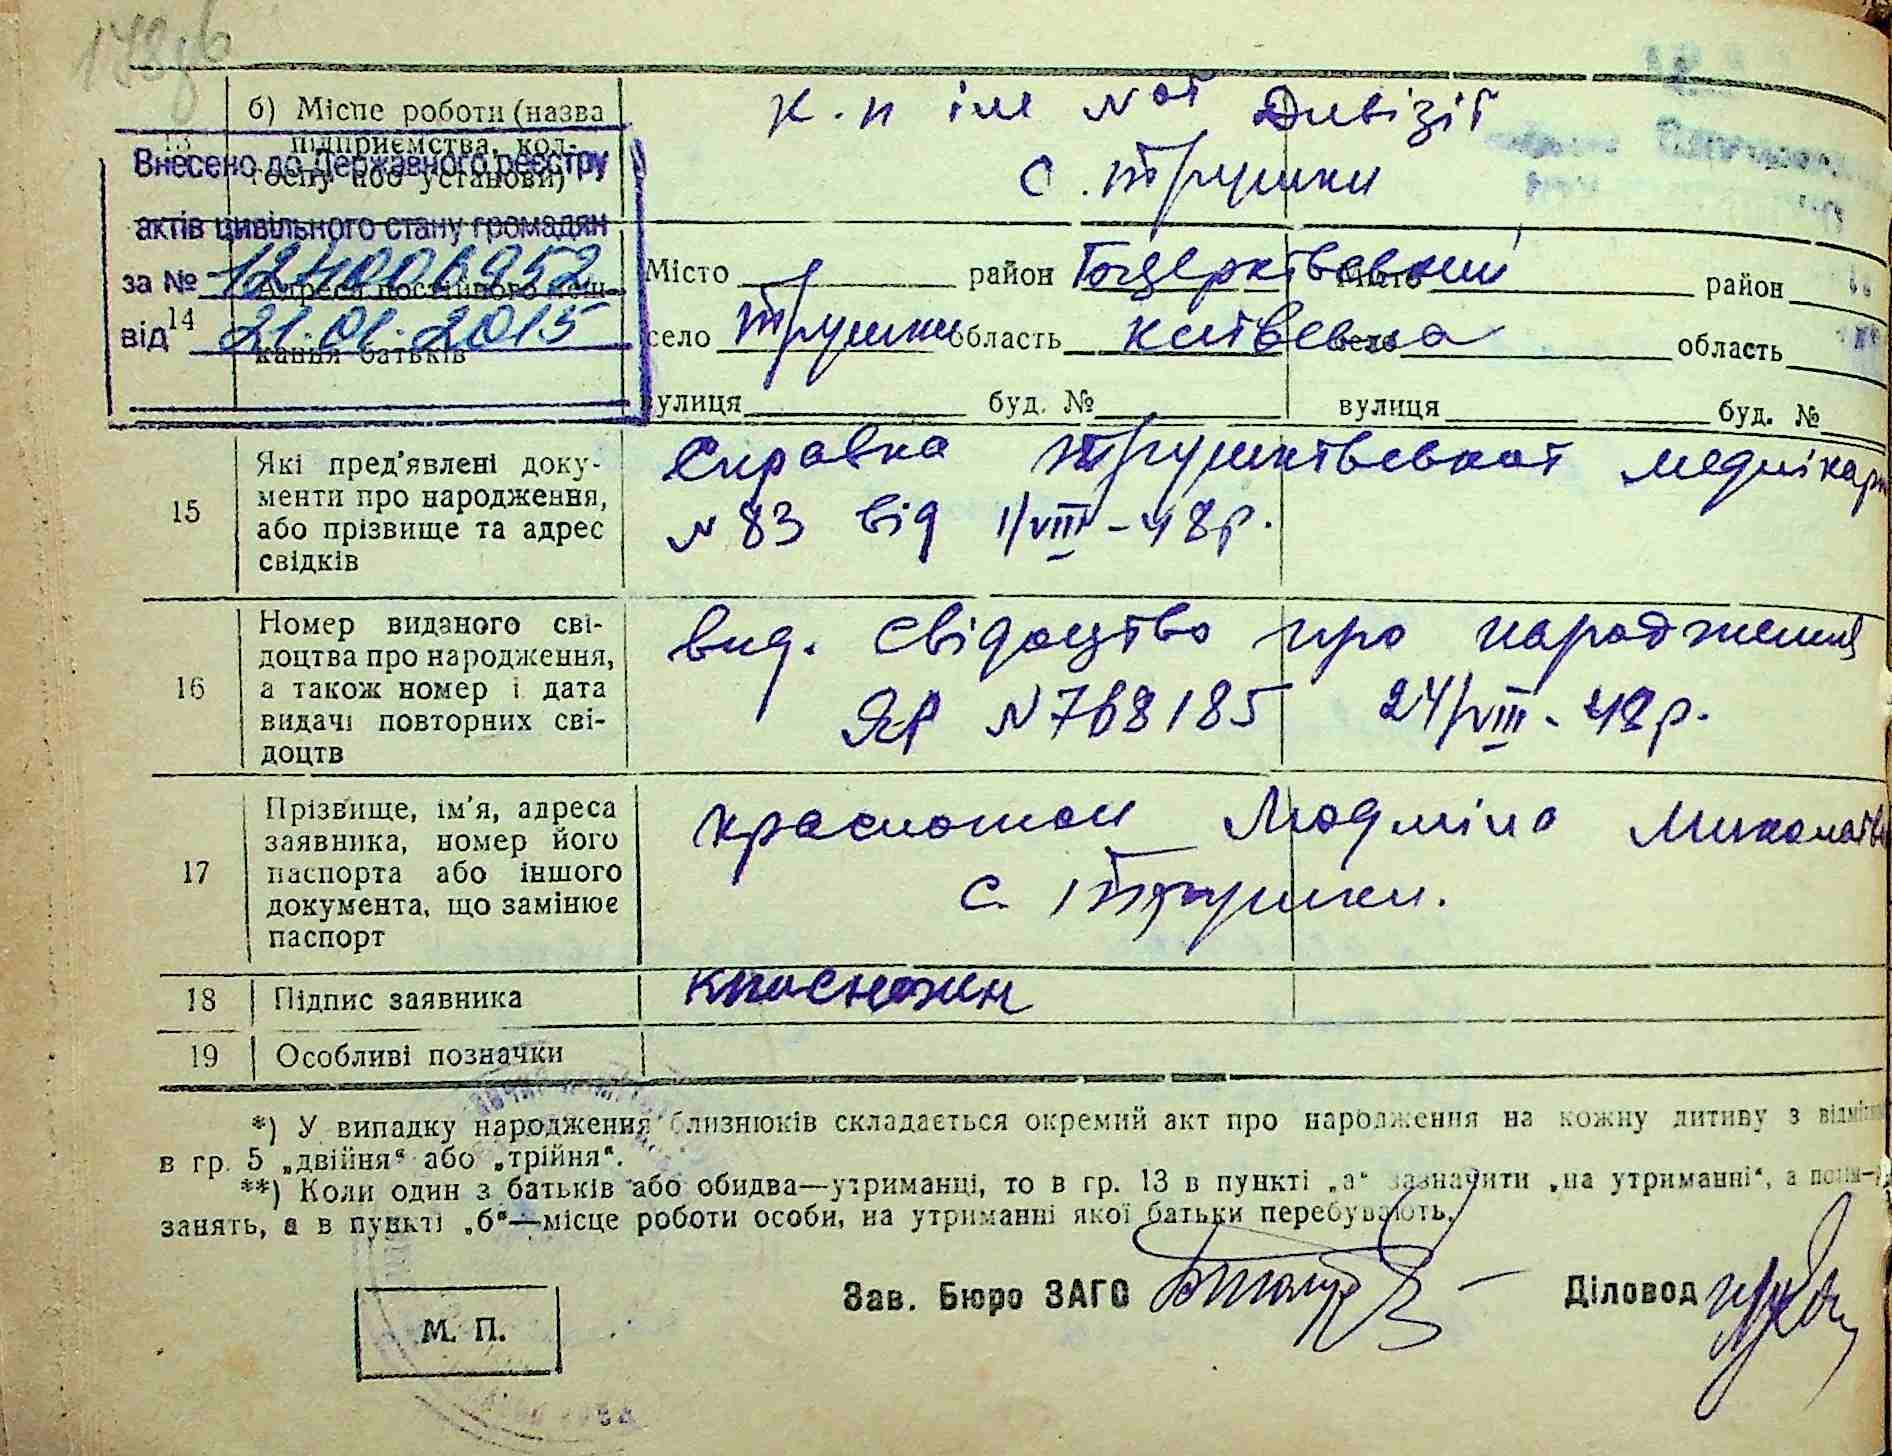 178зв
б) Місце роботи (назва
13 підприємства, кол-
госпу або установи)
к.п ім N ої Дивізії
с. Трушки
Внесено до Державного реєстру
актів цивільного стану громадян
за №
від 21.01.2015
14 Адреса постійного меш-
кання батьків
Місто район Білцерківський Місто район
село Трушки область Київська село область
вулиця буд. № вулиця буд. №
15 Які пред'явлені доку-
менти про народження,
або прізвище та адрес
свідків
Справка Трушківської медлікарн
N 83 від 1/VIII-48р.
16 Номер виданого сві-
доцтва про народження,
а також номер і дата
видачі повторних сві-
доцтв
вид. свідоцтво про народження
ЯР N 768185 24/VIII-48р.
17 Прізвище, ім'я, адреса
заявника, номер його
паспорта або іншого
документа, що замінює
паспорт
Красножон Людміла Миколаїв
с. Трушки.
18 Підпис заявника Красножон
19 Особливі позначки
*) У випадку народження близнюків складається окремий акт про народження на кожну дитину з
в гр. 5 „двійня“ або „трійня“.
**) Коли один з батьків або обидва—утриманці, то в гр. 13 в пункті „а“ зазначити „на утриманні“, а
занять, а в пункті „б“—місце роботи особи, на утриманні якої батьки перебувають.
Зав. Бюро ЗАГС Діловод
М. П.